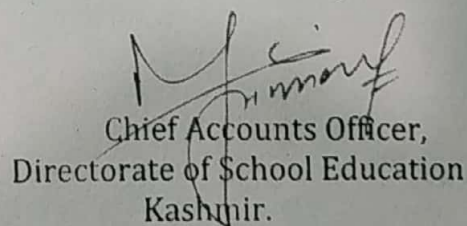 Chief Accounts Officer,
Directorate of School Education
Kashmir.